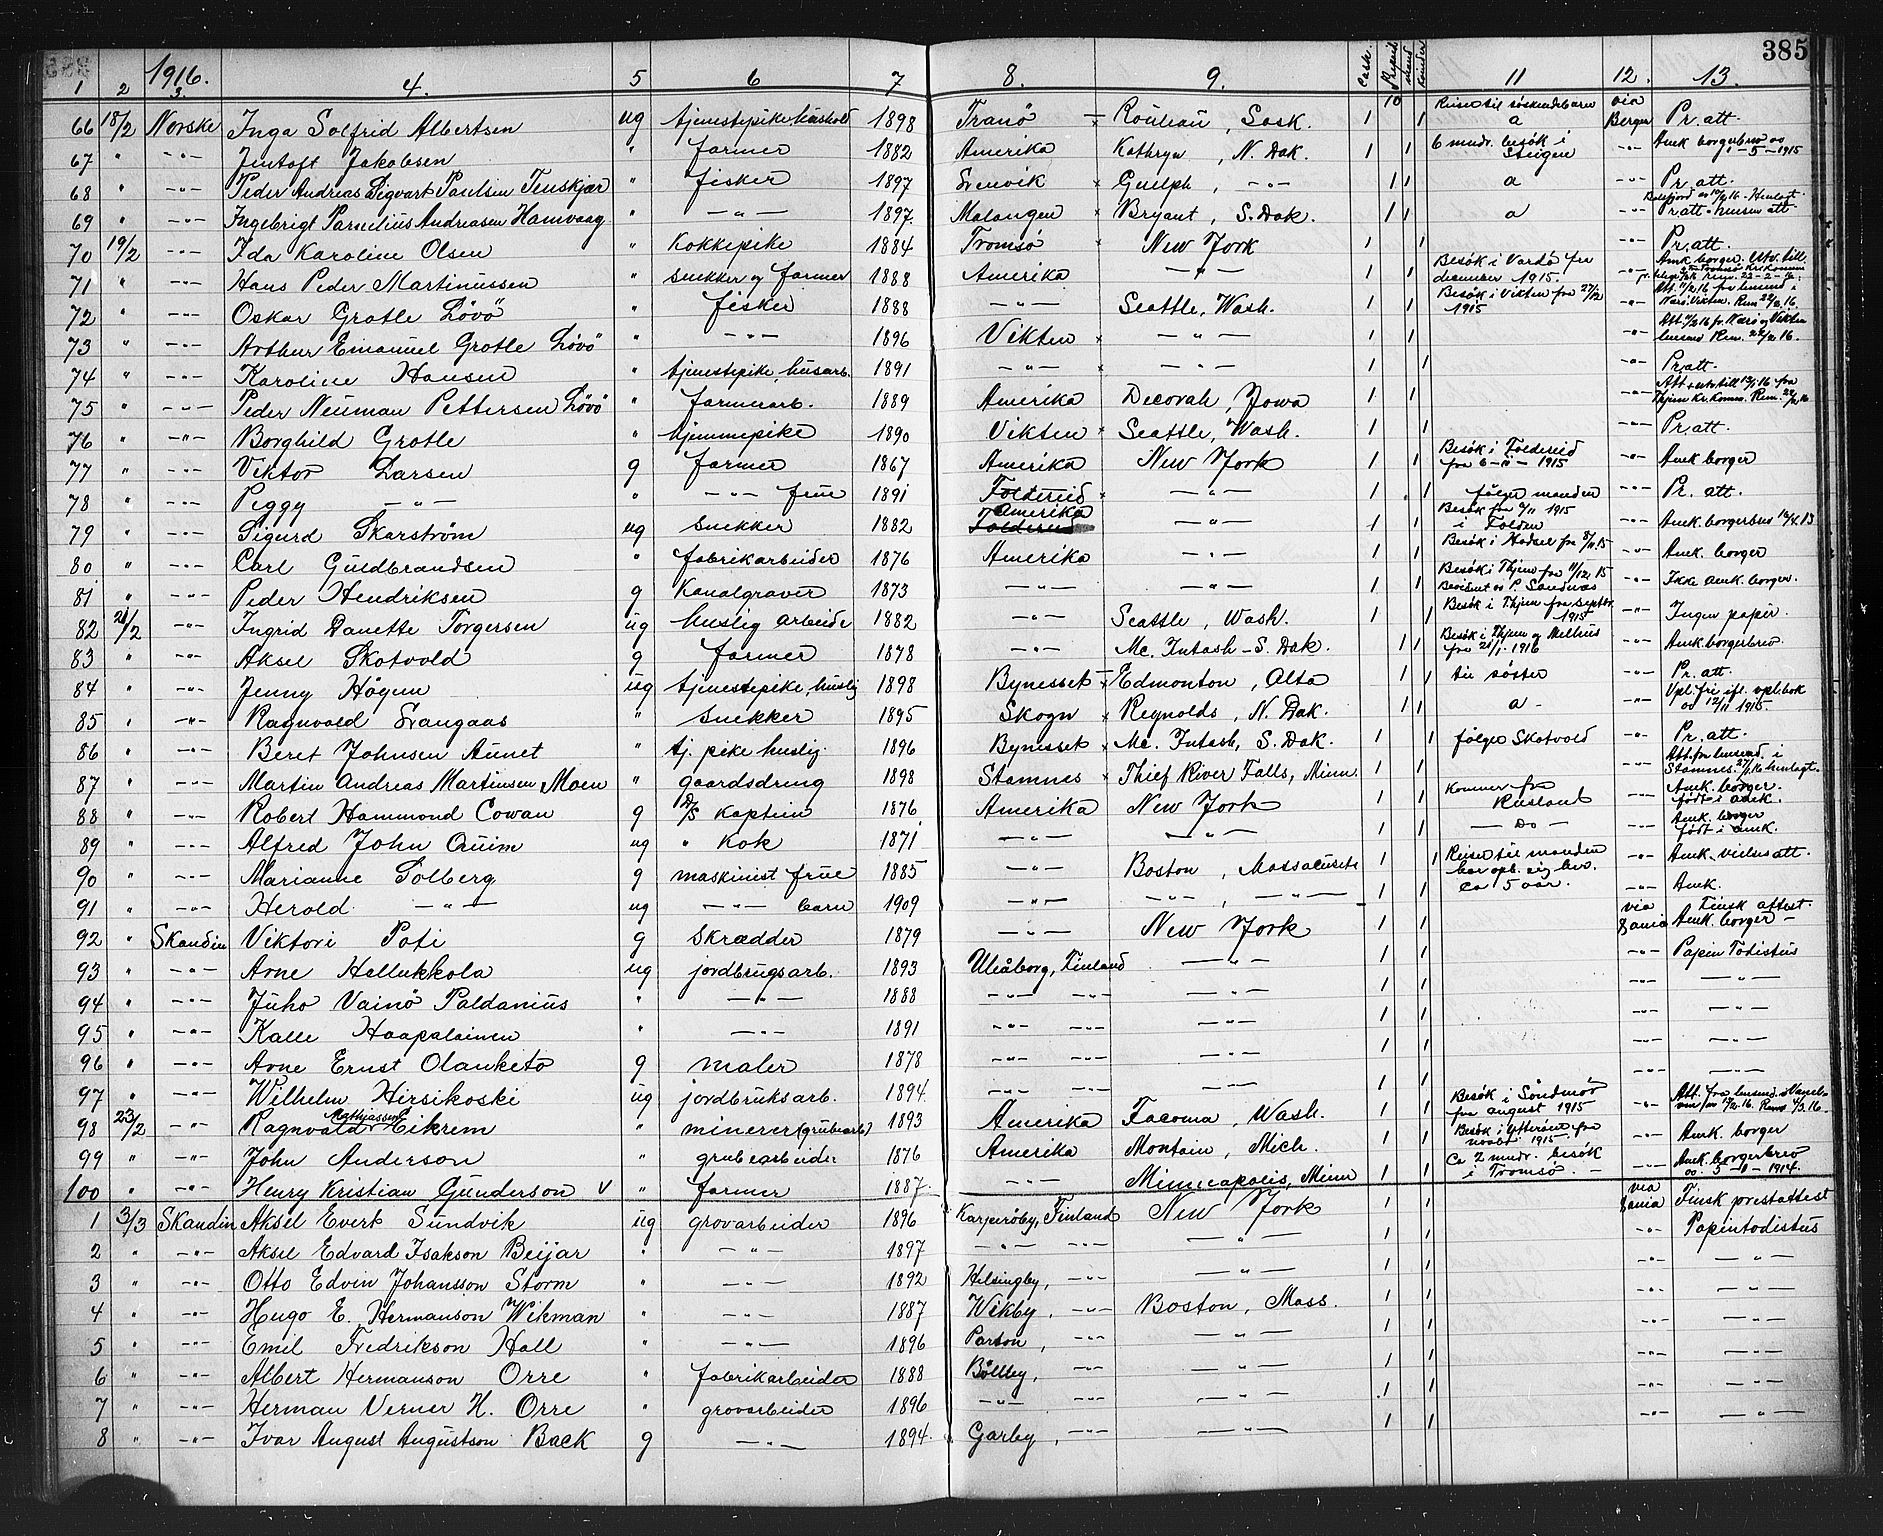 385
1916.
1 2 3. 4. 5 6 7 8. 9. Cash. Prepaid Mand Kvinder 11 12. 13.
10 Reiser til söskendebarn via
66 18/2 Norske Inga Solfrid Albertsen ug tjenestepike, hushold 1898 Tranö × Rouleau, Sask. 1 1 a Bergen Pr. att.
67 " -"- Jentoft Jakobsen " farmer 1882 Amerika Kathryn, N. Dak. 1 1 6 mndr. besök i Steigen -"- Amk borgerbrev av 1-5-1915
68 " -"- Peder Andreas Sigvart Paulsen Tenskjær " fisker 1897 Svenvik × Guelph, -"- 1 1 a -"- Pr. att.
69 " -"- Ingebrigt Parnelius Andreasen Hamvaag " -"- 1897 Malangen × Bryant, S. Dak. 1 1 a -"- Pr. att.
70 19/2 -"- Ida Karoline Olsen " kokkepike 1884 Tromsö × New York 1 1 -"- Pr. att.
71 " -"- Hans Peder Martinussen " snekker og farmer 1888 Amerika -"- 1 1 Besök i Vardö fra december 1915. -"- Amk borger.
72 " -"- Oskar Grotle Lövö " fisker 1888 -"- Seattle, Wash. 1 1 Besök i Vikten fra 27/12 1915 -"-
73 " -"- Arthur Emanuel Grotle Lövö " -"- 1896 Vikten × -"- 1 1 -"-
74 " -"- Karoline Hansen " tjenestepike, husarb. 1891 -"- × -"- 1 1 -"- Pr. att.
75 " -"- Peder Neuman Pettersen Lövö " farmerarb. 1889 Amerika Decorah, Iowa 1 1 -"-
76 " -"- Borghild Grotle " hjemmepike 1890 Vikten × Seattle, Wash. 1 1 -"- Pr. att.
77 " -"- Viktor Larsen g farmer 1867 Amerika New York 1 1 Besök i Foldereid fra 6-11-1915 -"- Amk borger
78 " -"- Peggy -"- " -"- frue 1891 Foldereid × -"- 1 1 følger manden -"- Pr. att.
79 " -"- Sigurd Skarström ug snekker 1882 Amerika -"- 1 1 i Folden -"- Amk. borgerbrev
80 " -"- Carl Guldbrandsen " fabrikarbeider 1876 Amerika -"- 1 1 Besök i Hadsel fra 8/11 15 -"- Amk. borger
81 " -"- Peder Hendriksen g Kanalgraver 1873 -"- -"- 1 1 Besök i Thjem fra 11/12 15 -"- Ikke amk. borger.
82 21/2 -"- Ingrid Danette Torgersen ug huslig arbeide 1882 -"- Seattle, Wash. 1 1 Besök i Thjem fra septbr. 1915 -"- Ingen papir.
83 " -"- Aksel Skotvold g farmer 1878 -"- Mc. Intosh - S. Dak. 1 1 Besök i Thjem og Melhus fra 21/1 - 1916 -"- Amk. borgerbrev
84 " -"- Jenny Högen ug tjenestepike, huslig 1898 Bynesset × Edmonton, Alta 1 1 til söster -"- Pr. att.
85 " -"- Ragnvald Svangaas " snekker 1895 Skogn × Reynolds, N. Dak. 1 1 a - -"- Vpl. fri ifl. vpl.bok av 12/11 1915.
86 " -"- Beret Johnsen Aunet " tj. pike huslig. 1896 Bynesset × Mc. Intosh, S. Dak. 1 1 følger Skotvold -"- Pr. att.
87 " -"- Martin Andreas Martinsen Moen " gaardsdreng 1898 Stamnes × Thief River Falls, Minn. 1 1 -"- Att. fra lensmd. i Stamnes 27/1 16 henlagt.
88 " -"- Robert Hammond Cowan g D/S kaptein 1876 Amerika New York 1 1 Kommer fra Rusland -"- Amk. borger. født i amk.
89 " -"- Alfred John Cruim ug " kok 1871 -"- -"- 1 1 - Do - -"- Amk. borger født i amk.
90 " -"- Marianne Solberg g maskinist frue 1885 -"- Boston, Massacusets 1 1 Reiser til manden har oph. sig her. ca 5 aar. -"- Amk. vielsesatt.
91 " -"- Herold -"- ug -"- barn 1909 -"- -"-, -"- 1 1 -"- Amk.
92 " Skandin Viktori Poti g skrædder 1879 -"- New York 1 1 via Dania Finsk attest. Amk. borger -
93 " -"- Arne Hallukkola ug jordbrugsarb. 1893 Uleåborg, Finland -"- 1 1 -"- Papin Todistus
94 " -"- Juho Vainö Paldanius " -"- 1888 -"- -"- -"- 1 1 -"- -"-
95 " -"- Kalle Haapalainen " -"- 1891 -"- -"- -"- 1 1 -"- -"-
96 " -"- Arne Ernst Olanketo g maler 1878 -"- -"- -"- 1 1 -"- -"-
97 " -"- Wilhelm Hirsikoski ug jordbruksarb. 1894 -"- -"- 1 1 -"- -"-
98 23/2 -"- Ragnvald Mathiassen Eikrem " minerer (grubearb) 1893 Amerika Tacoma, Wash. 1 1 Besök i Söndmör fra august 1915 -"-
99 " -"- John Anderson " grubearbeider 1876 Amerika Montain, Mich. 1 1 Besök i Ytterøen fra novbr 1915 -"- Amk. borger
100 " -"- Henry Kristian Gunderson v " farmer 1887 -"- Minneapolis, Minn 1 1 Ca 2 mndr. besök i Tromsö. -"- Amk. borgerbrev
1 3/3 Skandin Aksel Evert Sundvik ug grovarbeider 1896 Karperöby, Finland New York 1 1 via Dania Finsk prestattest
2 " -"- Aksel Edvard Isakson Beijar " -"- 1897 -"- -"- -"- 1 1 -"- Papintodistus
3 " -"- Otto Edvin Johansson Storm " -"- 1892 Helsingby, -"- -"- 1 1 -"- -"-
4 " -"- Hugo E. Hermanson Wikman " -"- 1887 Wikby, -"- Boston, Mass. 1 1 -"- -"-
5 " -"- Emil Fredrikson Hall " -"- 1896 Parton, -"- -"- 1 1 -"- -"-
6 " -"- Albert Hermanson Orre " fabrikarbeider 1888 Bölby, -"- -"- 1 1 -"- -"-
7 " -"- Herman Verner H. Orre " grovarbeider 1896 -"- -"- -"- 1 1 -"- -"-
8 " -"- Ivar August Augustson Back g -"- 1894 Garby, -"- -"- 1 1 -"- -"-